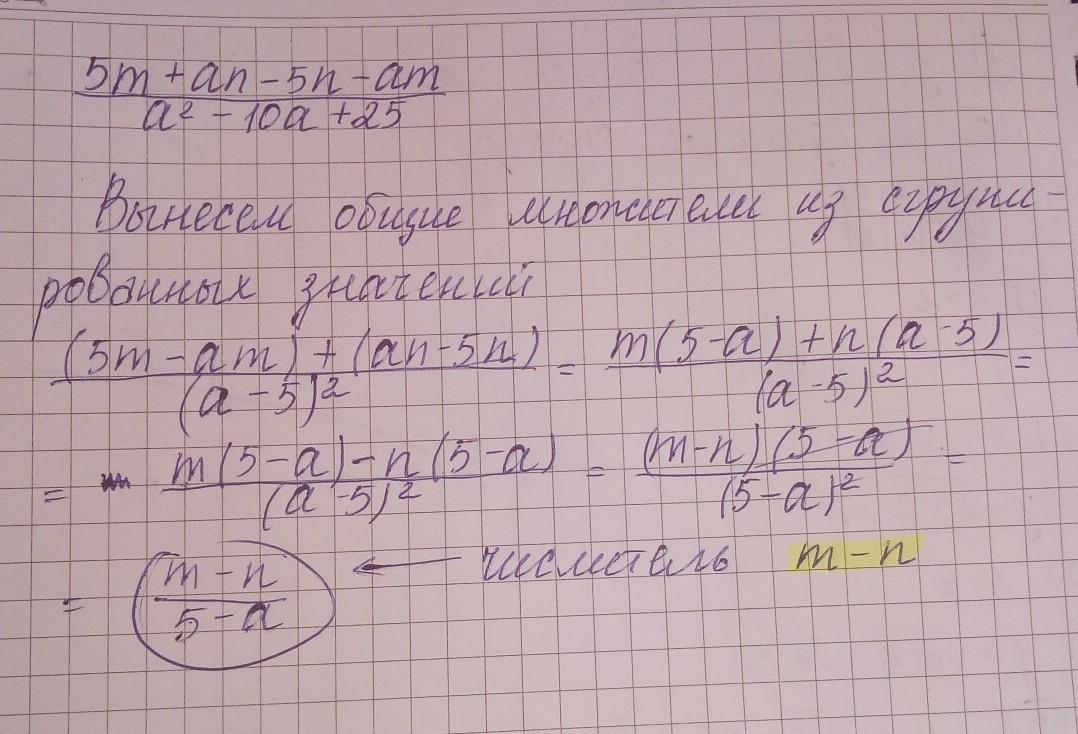 5m + an - 5n - am
a² - 10a + 25
Вынесем общие множители из сгрупи-
рованных значений
(5m - am) + (an - 5n) = m(5-a) + n(a-5) =
(a - 5)² (a - 5)²
= m(5-a) - n(5-a) = (m-n)(5-a) =
(a - 5)² (5-a)²
= m - n ← числитель m - n
5 - a